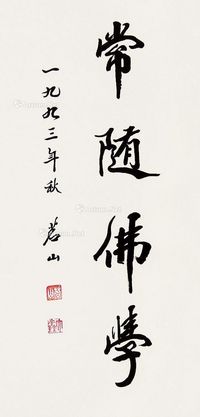 常随佛學
一九九三年秋
茗山